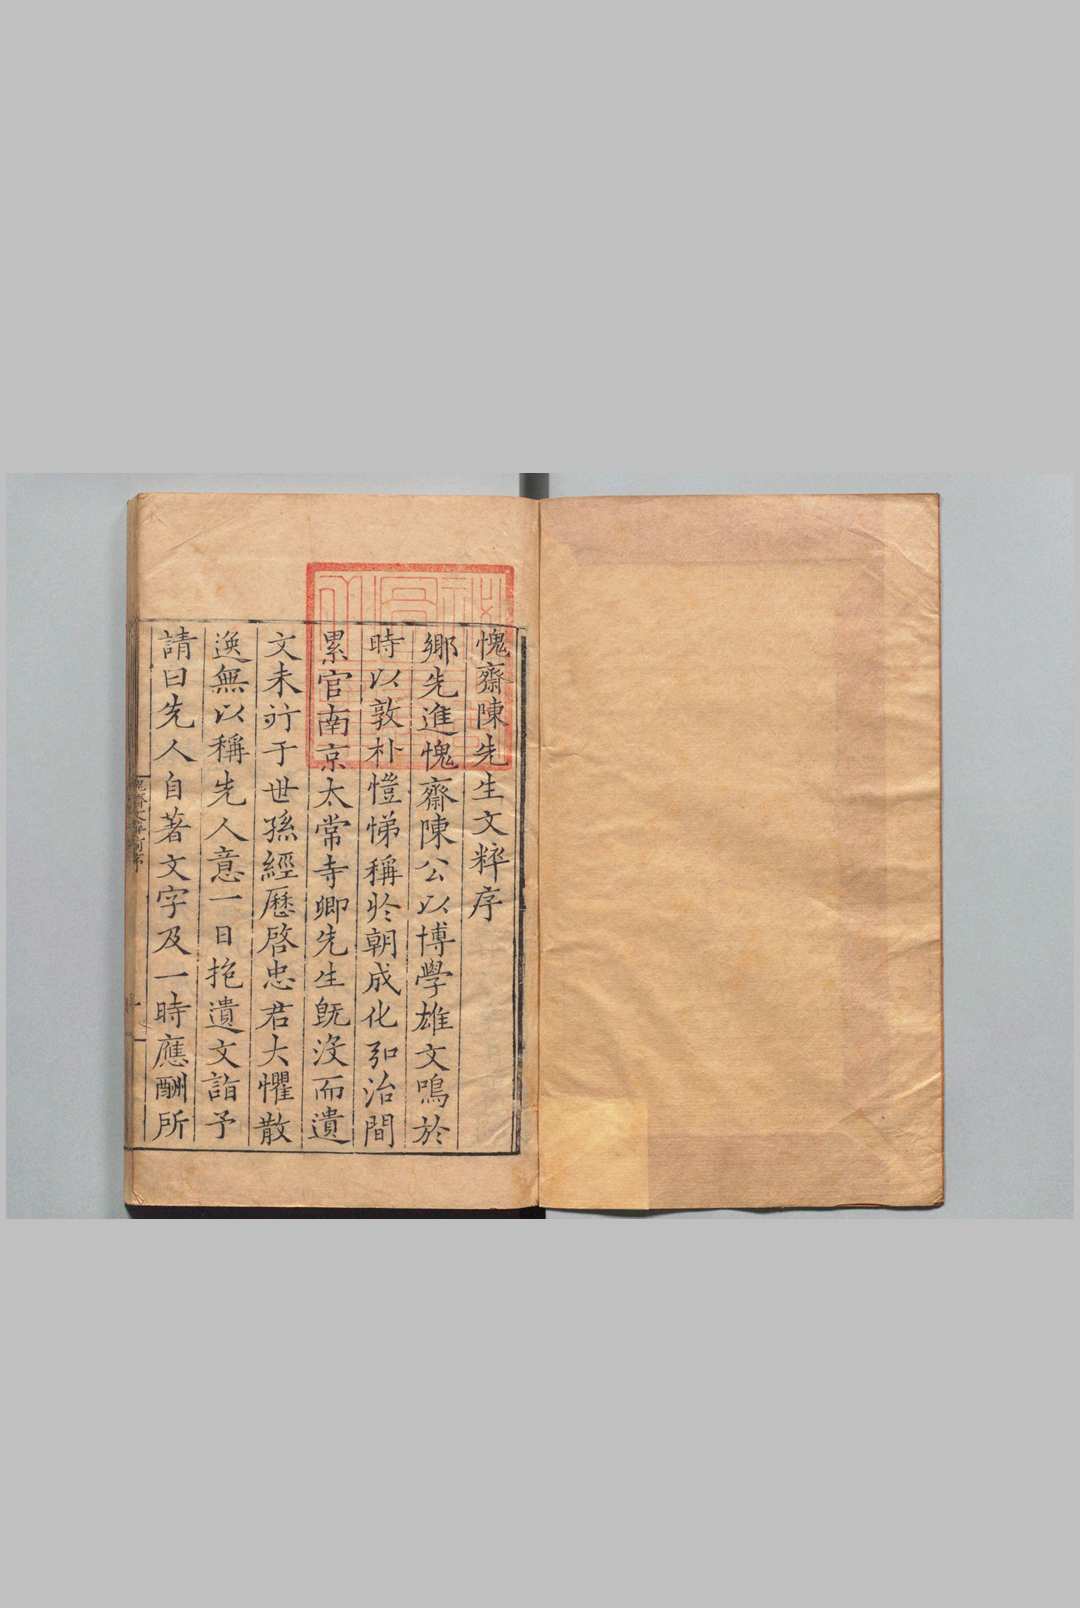 愧齋陳先生文粹序
鄉先進愧齋陳公以博學雄文鳴於
時以敦朴愷悌稱於朝成化弘治間
累官南京太常寺卿先生既沒而遺
文未行于世孫經歷啓忠君大懼散
逸無以稱先人意一日抱遺文詣予
請曰先人自著文字及一時應酬所